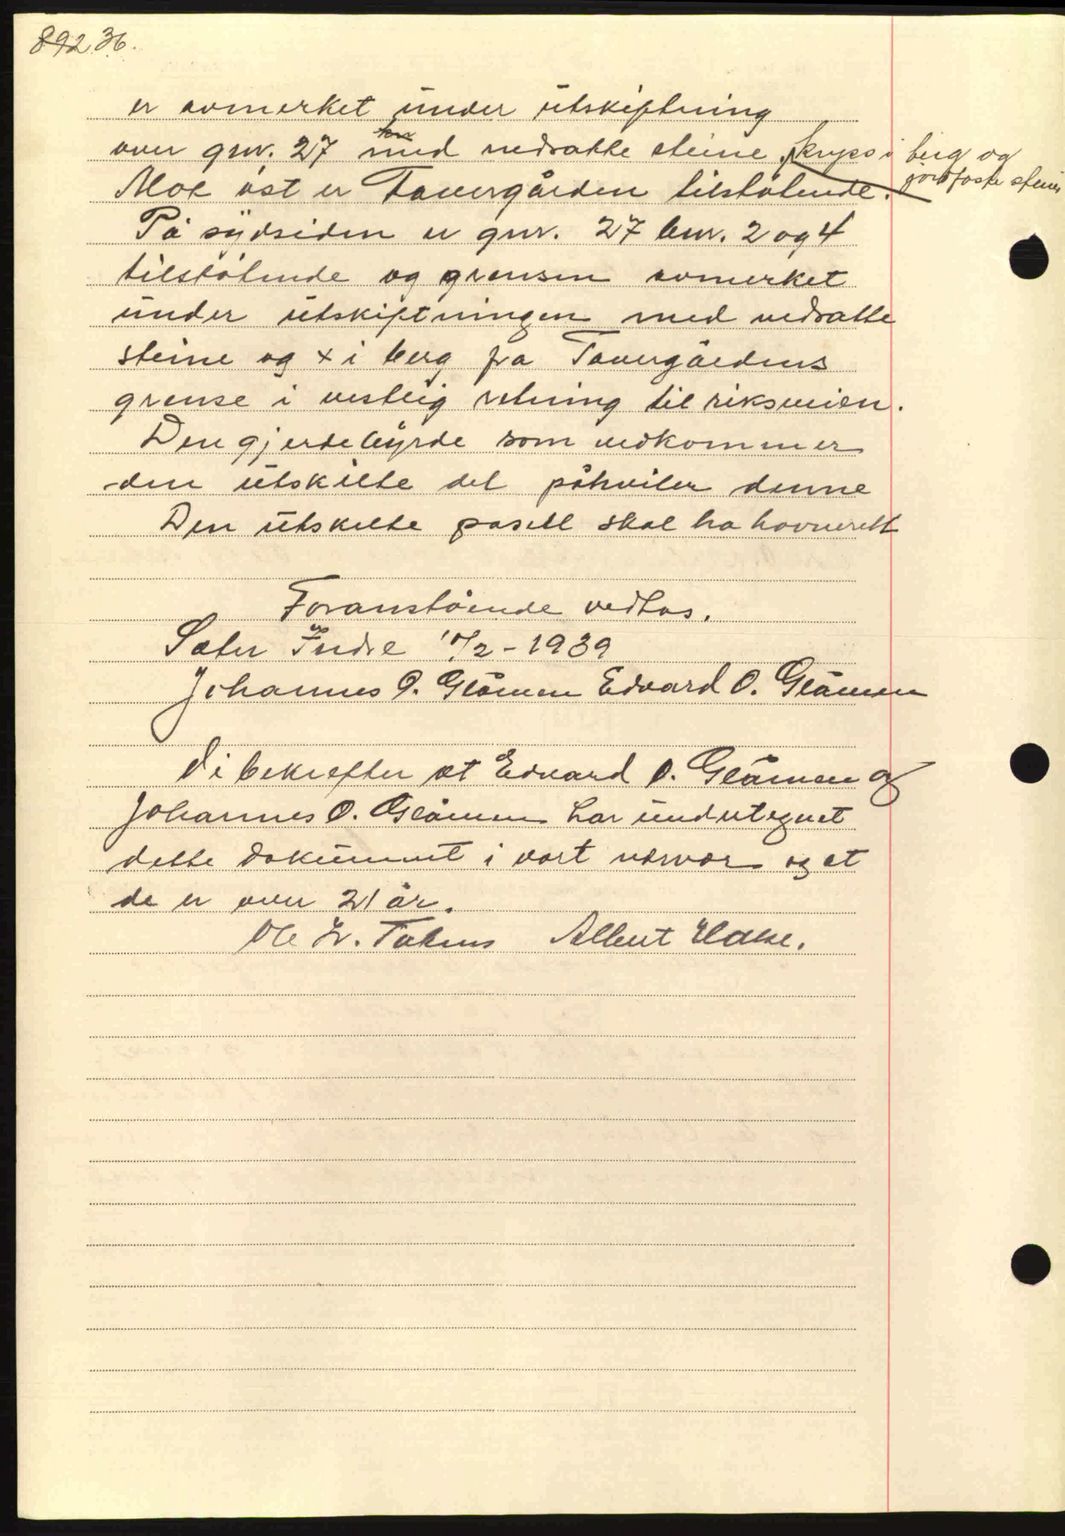 892 36.
er avmerket under utskiftning
over gnr. 27 med nedsatte steine, kryss i berg og
jordfaste steine
Mot øst er Tauergården tilstøtende.
På sydsiden er gnr. 27 bnr. 2 og 4
tilstøtende og grensen avmerket
under utskiftningen med nedsatte
steine og x i berg fra Tauergårdens
grense i vestlig retning til riksveien.
Den gjerdebyrde som vedkommer
den utskilte del påhviler denne
Den utskilte parsell skal ha havnerett
Foranstående vedtas.
Sæter Indre 10/2 - 1939
Johannes O. Glåmen Edvard O. Glåmen
Vi bekrefter at Edvard O. Glåmen og
Johannes O. Glåmen har undertegnet
dette dokument i vort nærvær og at
de er over 21 år.
Ole Albert